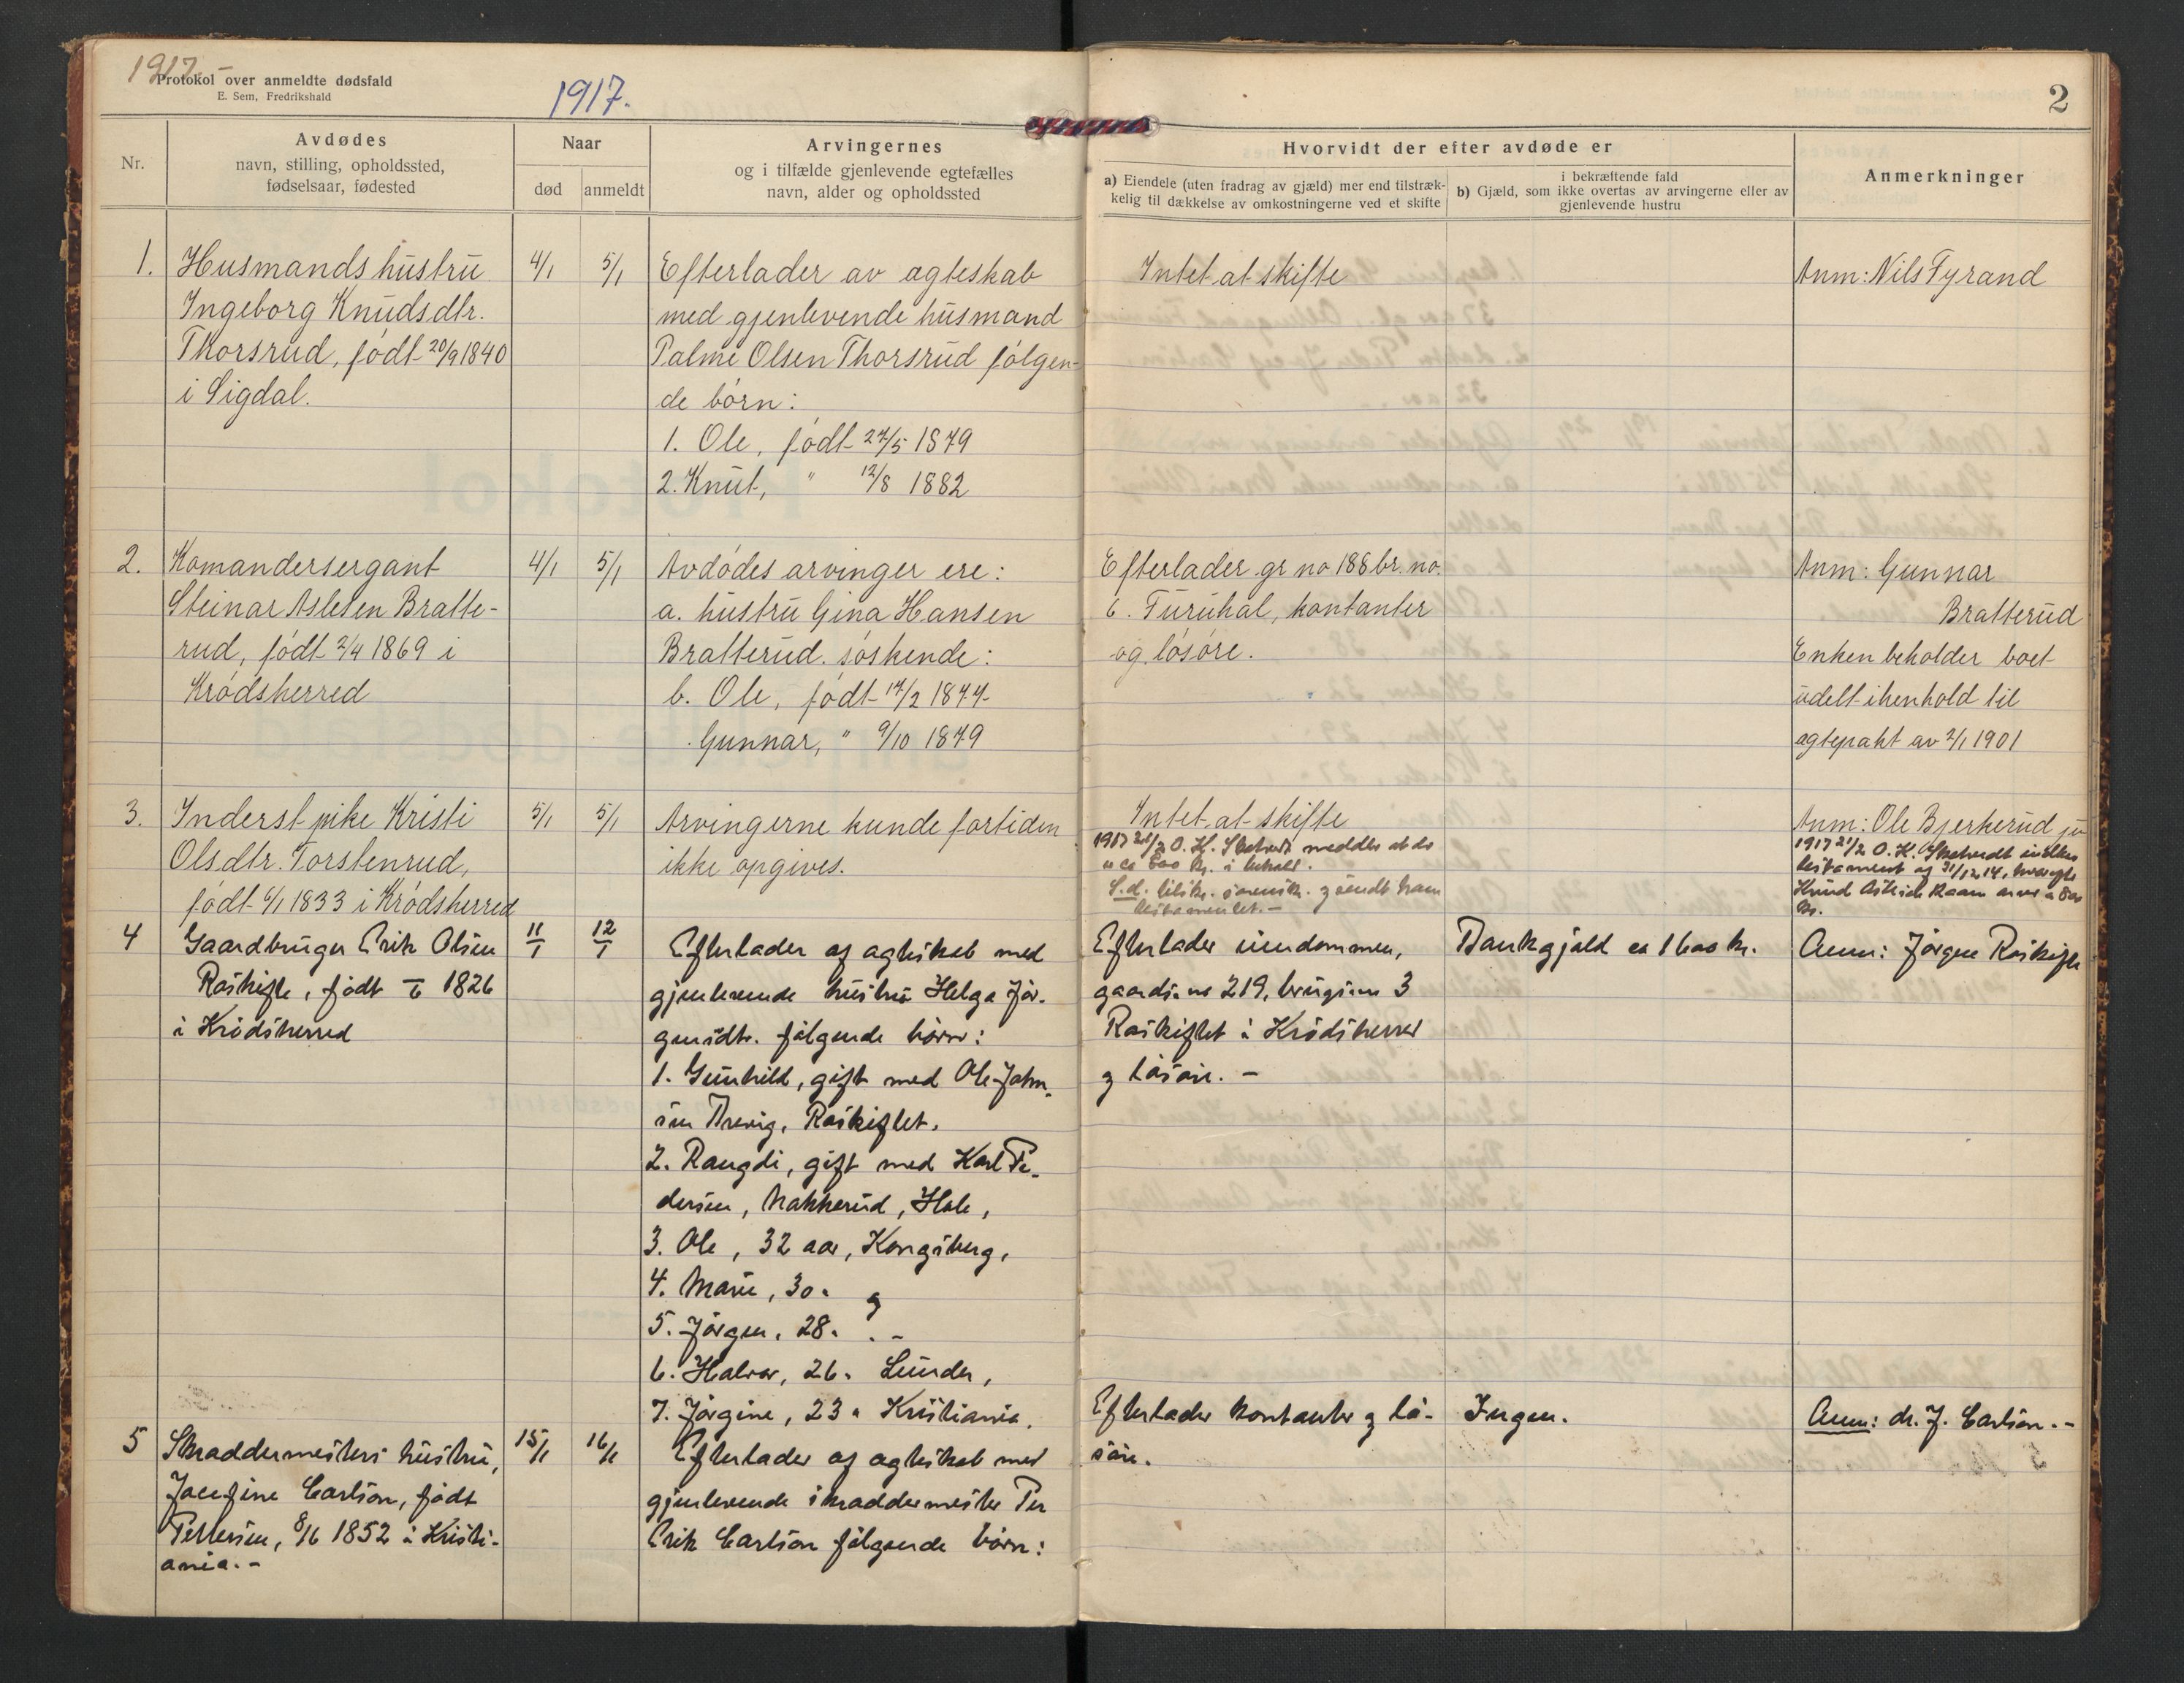 1917.-
Protokol over anmeldte dødsfald
E. Sem, Fredrikshald
1917.
2
Nr.
Avdødes
navn, stilling, opholdssted,
fødselsaar, fødested
Naar
død
anmeldt
Arvingernes
og i tilfælde gjenlevende egtefælles
navn, alder og opholdssted
Hvorvidt der efter avdøde er
a) Eiendele (uten fradrag av gjæld) mer end tilstræk-
kelig til dækkelse av omkostningerne ved et skifte
i bekræftende fald
b) Gjæld, som ikke overtas av arvingerne eller av
gjenlevende hustru
Anmerkninger
1.
Husmandshustru
Ingeborg Knudsdtr.
Thorsrud, født 20/9 1840
i Sigdal.
4/1
5/1
Efterlader av egteskab
med gjenlevende husmand
Palme Olsen Thorsrud følgen-
de børn:
1. Ole, født 27/5 1879
2. Knut, " 12/8 1882
Intet at skifte
Anm: Nils Tyrand
2.
Komandersergant
Steinar Aslesen Bratte-
rud, født 2/4 1869 i
Krødsherred
4/1
5/1
Avdødes arvinger ere:
a. hustru Gina Hansen
Bratterud. søskende:
b. Ole, født 17/2 1877
Gunnar, " 9/10 1879
Efterlader gr no 188 br. no.
6. Furuhal, kontanter
og løsøre.
Anm: Gunnar
Bratterud
Enken beholder boet
udelt ihenhold til
egtepakt av 2/1 1901
3.
Inderst pike Kristi
Olsdtr. Torstenrud,
født 6/1 1833 i Krødsherred
5/1
5/1
Arvingerne kunde fortiden
ikke opgives.
Intet at skifte
1917 21/2 O. K. meddler at de
er ca 800 kr. i behold.
S.d. tilskr. sorensk. g sendt ham
testamentet.-
Anm: Ole Bjerkerud jr
1917 21/2 O. K.
testament af 31/12 14,
Knud
kr.
4
Gaardbruger Erik Olsen
Røskifte, født 1826
i Krødsherred
11/1
12/1
Efterlader af egteskab med
gjenlevende hustru Helga Jør-
gensdtr. følgende børn:
1. Gunhild, gift med Ole John-
sen Brevig, Røskiftet.
2. Rangdi, gift med Karl Pe-
dersen, Nakkerud, Hole,
3. Ole, 32 aar, Kongsberg,
4. Marie, 30 " g
5. Jørgen, 28 " . -
6. Halvor, 26 " Lunder,
7. Jørgine, 23 " Kristiania.
Efterlader eiendommen,
gaards.no 219, brugs.no 3
Røskiftet i Krødsherred
g løsøre. -
Bankgjæld ca 1600 kr.
Anm: Jørgen Røskifte
5
Skræddermesters hustru,
Josefine Carlson, født
Pettersen, 8/6 1852 i Kristi-
ania.-
15/1
16/1
Efterlader af egteskab med
gjenlevende skræddermester Per
Erik Carlson følgende børn:
Efterlader kontanter g lø-
søre.
Ingen.
Anm: dr. J. Carlson.-